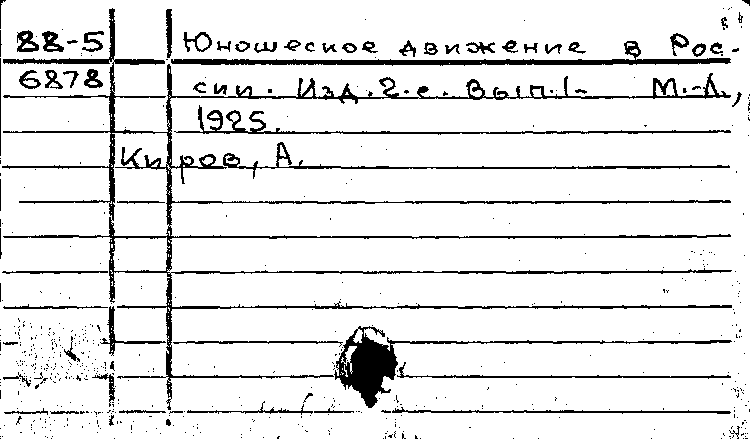 88-5 Юношеское движение в Рос-
6878 сии. Изд.2.е. Вып.1- М.-Л.,
1925.
Киров, А.